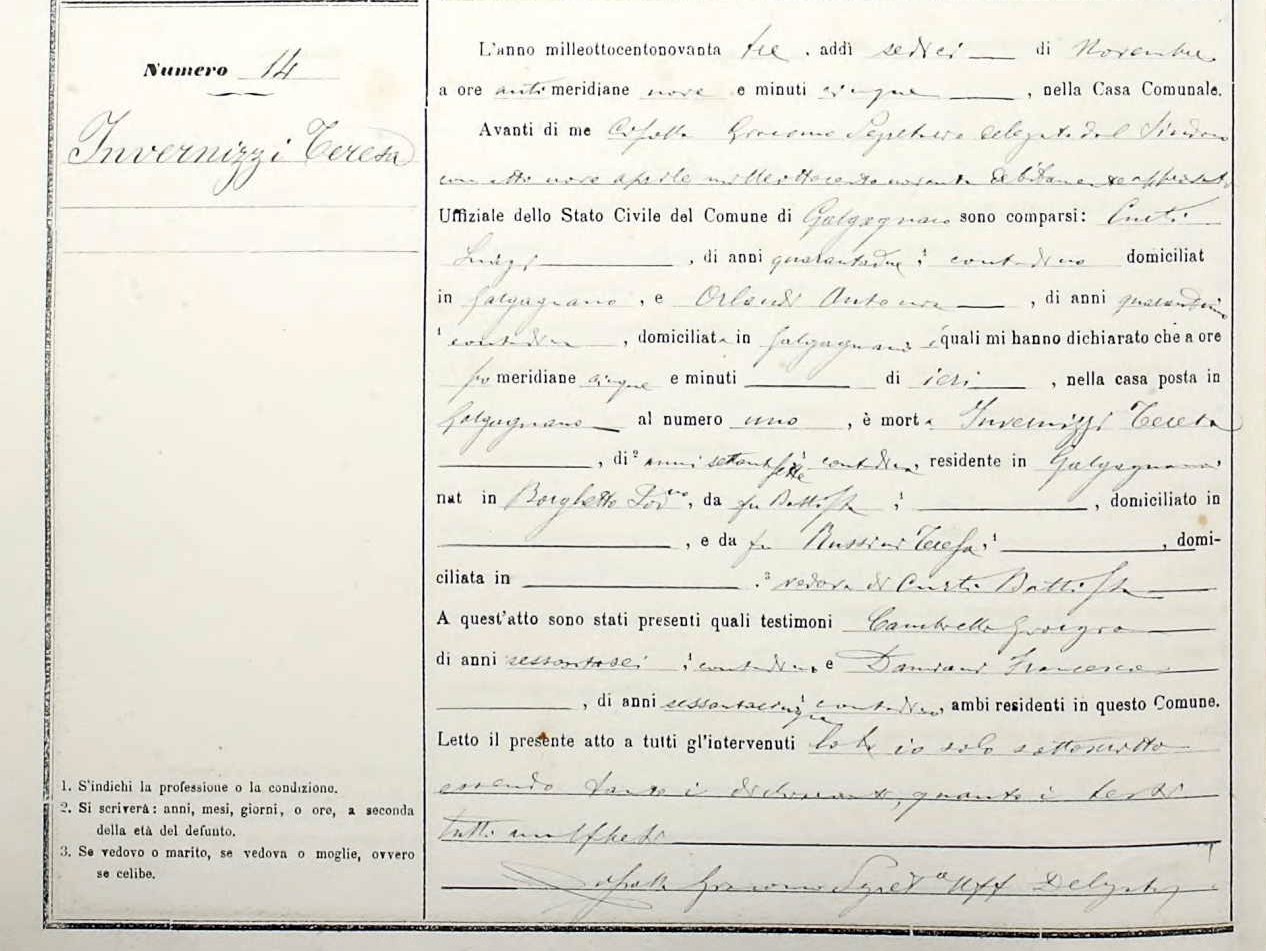 Numero 14
Invernizzi Teresa
1. S'indichi la professione o la condizione.
2. Si scriverà: anni, mesi, giorni, o ore, a seconda
della età del defunto.
3. Se vedovo o marito, se vedova o moglie, ovvero
se celibe.
L'anno milleottocentonovanta tre, addì sedici di Novembre
a ore anti meridiane nove e minuti cinque, nella Casa Comunale.
Avanti di me Giacomo Segretario delegato dal Sindaco
con atto nove aprile milleottocentonovanta debitamente approvato
Uffiziale dello Stato Civile del Comune di Galgagnano sono comparsi: Curti
Luigi, di anni quarantadue, 1 contadino domiciliat
in Galgagnano, e Orlandi Antonia, di anni
1 contadina, domiciliata in Galgagnano i quali mi hanno dichiarato che a ore
po meridiane cinque e minuti di ieri, nella casa posta in
Galgagnano al numero uno, è morta Invernizzi Teresa
, di 2 anni settantasette 1 contadina, residente in Galgagnano,
nat in Borghetto Lod.no, da fu Battista, 1, domiciliato in
, e da fu Russini Teresa, 1, domi-
ciliata in . 3 vedova di Curti Battista
A quest'atto sono stati presenti quali testimoni Giorgio
di anni sessantasei 1 contadino, e Damiani Francesco
, di anni sessantacinque 1 contadino, ambi residenti in questo Comune.
Letto il presente atto a tutti gl'intervenuti io solo sottoscritto
essendo tanto i dichiaranti, quanto i testi
tutti analfabeti
Giacomo Segret.o Uff Delegato